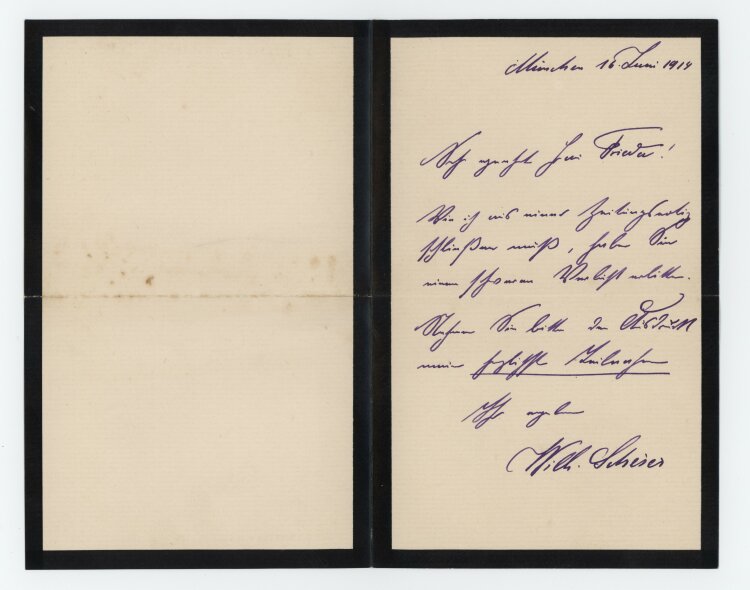 München 16. Juni 1914
Sehr geehrter Herr Frieder!
Wie ich aus einer Zeitungsnotiz
schließen muß, haben Sie
einen schweren Verlust erlitten.
Nehmen Sie bitte den Ausdruck
meiner herzlichsten Teilnahme
Ihr ergebener
Wilh.